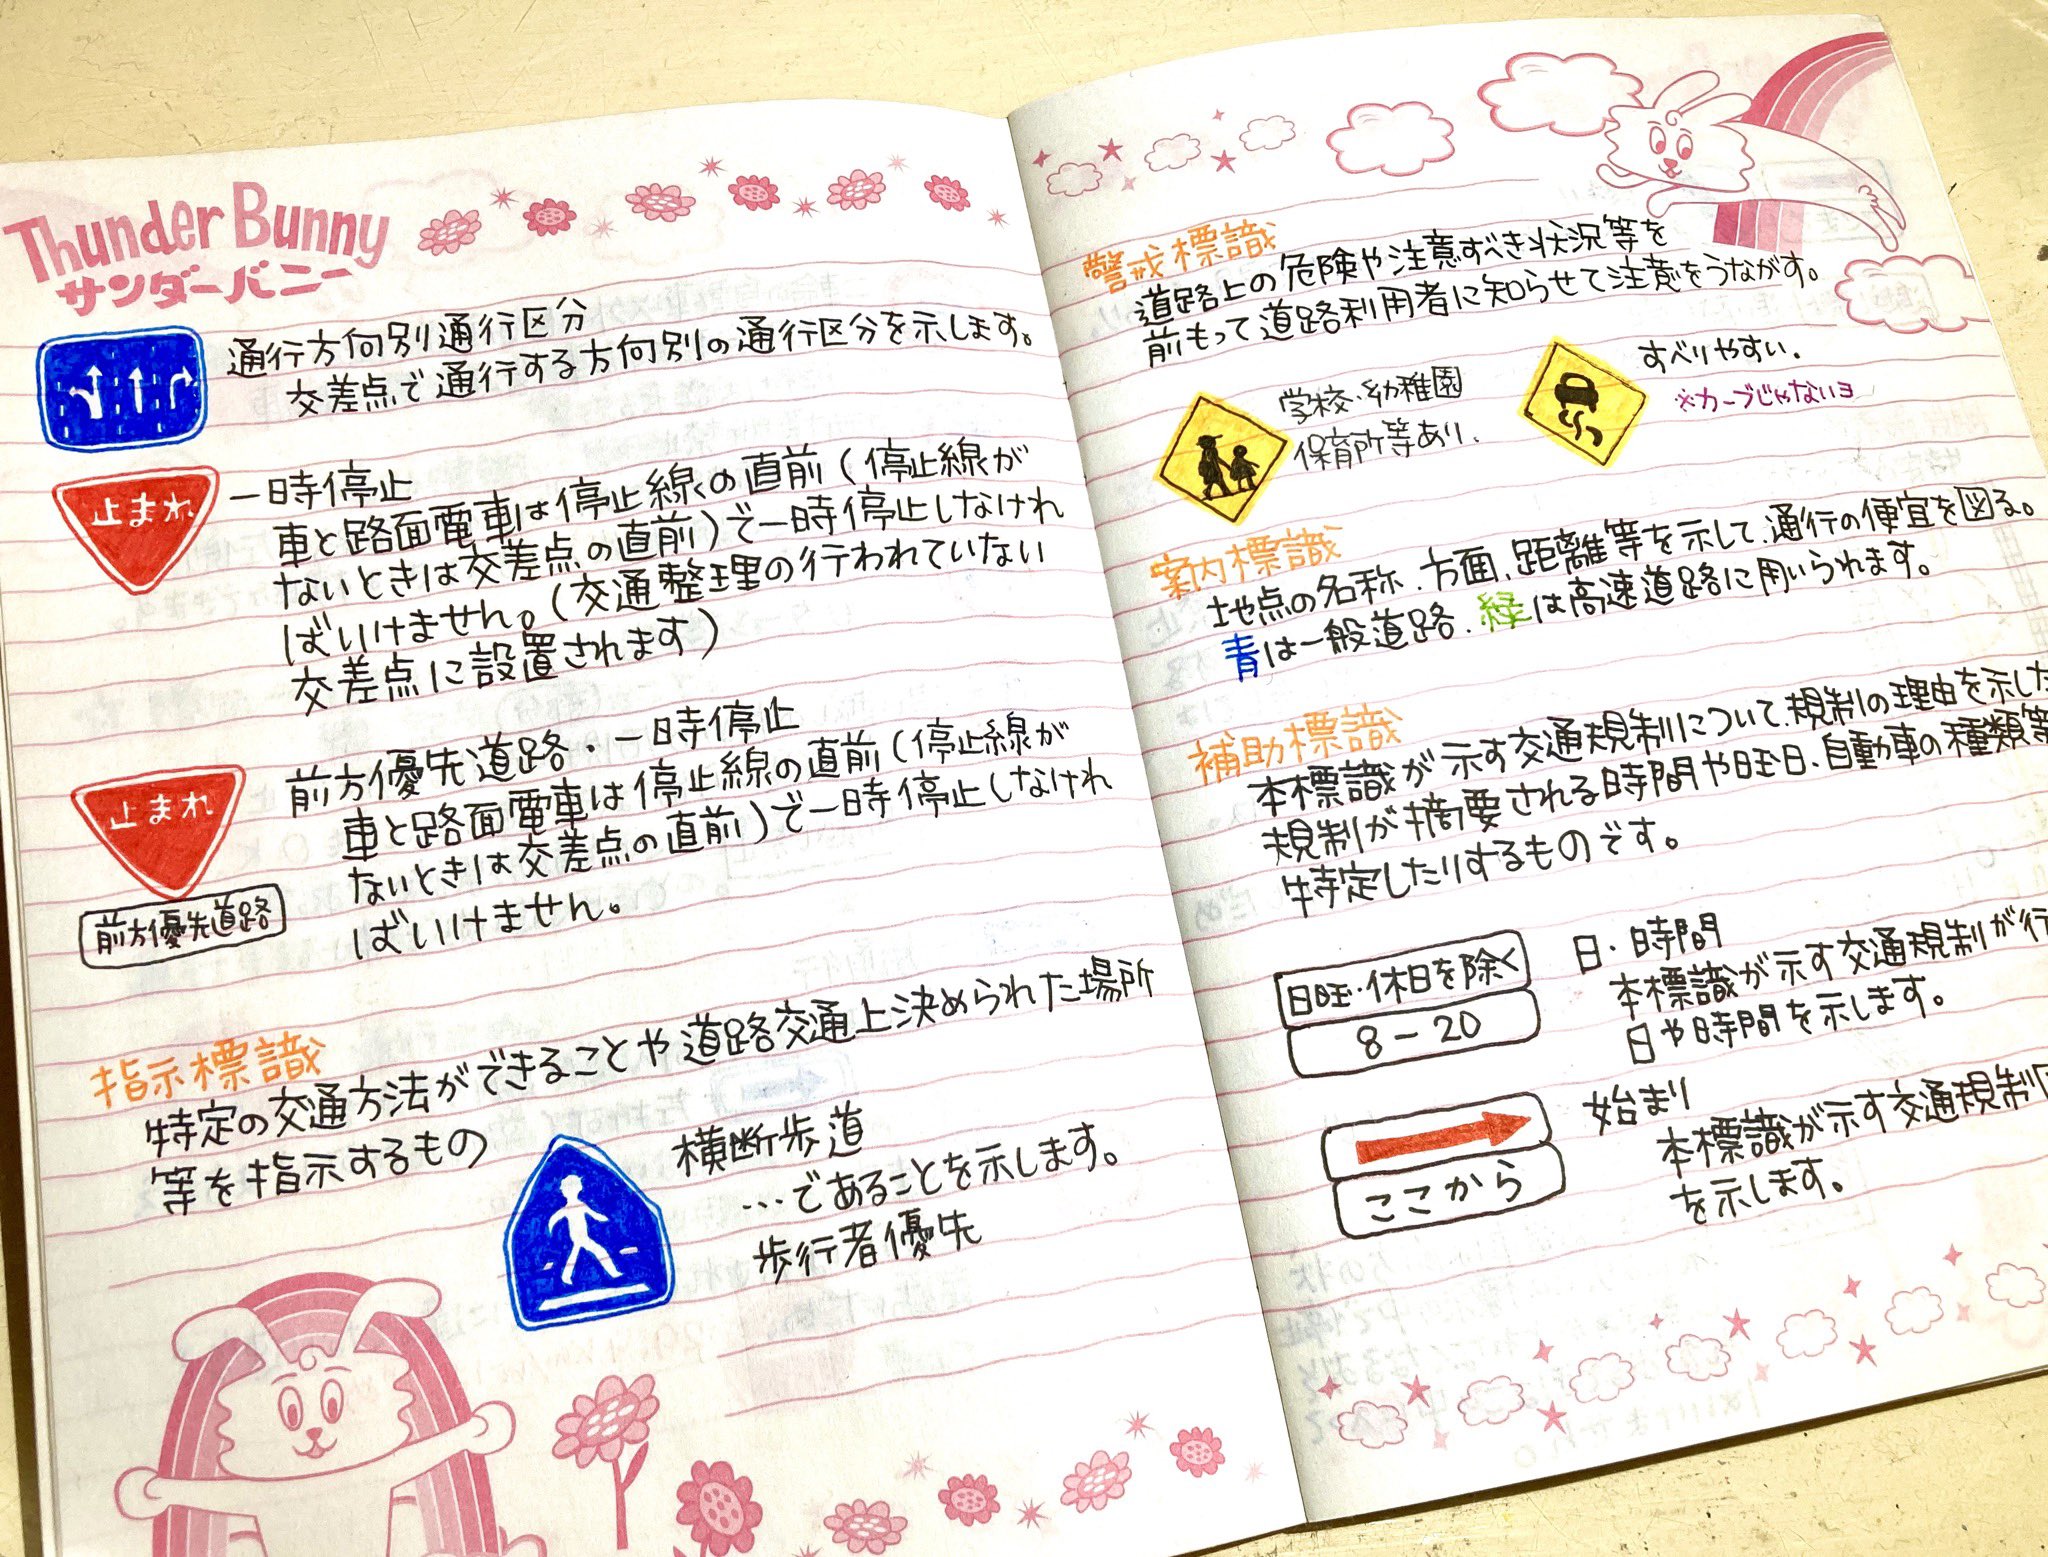 Thunder Bunny
サンダーバニー
通行方向別通行区分
交差点で通行する方向別の通行区分を示します。
止まれ
一時停止
車と路面電車は停止線の直前(停止線が
ないときは交差点の直前)で一時停止しなけれ
ばいけません。(交通整理の行われていない
交差点に設置されます)
止まれ
前方優先道路
前方優先道路・一時停止
車と路面電車は停止線の直前(停止線が
ないときは交差点の直前)で一時停止しなけれ
ばいけません。
指示標識
特定の交通方法ができることや道路交通上決められた場所
等を指示するもの
横断歩道
…であることを示します。
歩行者優先
警戒標識
道路上の危険や注意すべき状況等を
前もって道路利用者に知らせて注意をうながす。
学校・幼稚園
保育所等あり、
すべりやすい、
※カーブじゃないヨ
案内標識
地点の名称、方面、距離等を示して、通行の便宜を図る。
青は一般道路、緑は高速道路に用いられます。
補助標識
本標識が示す交通規制について、規制の理由を示した
規制が摘要される時間や曜日、自動車の種類等
特定したりするものです。
日曜・休日を除く
8-20
日・時間
本標識が示す交通規制が行
日や時間を示します。
ここから
始まり
本標識が示す交通規制
を示します。